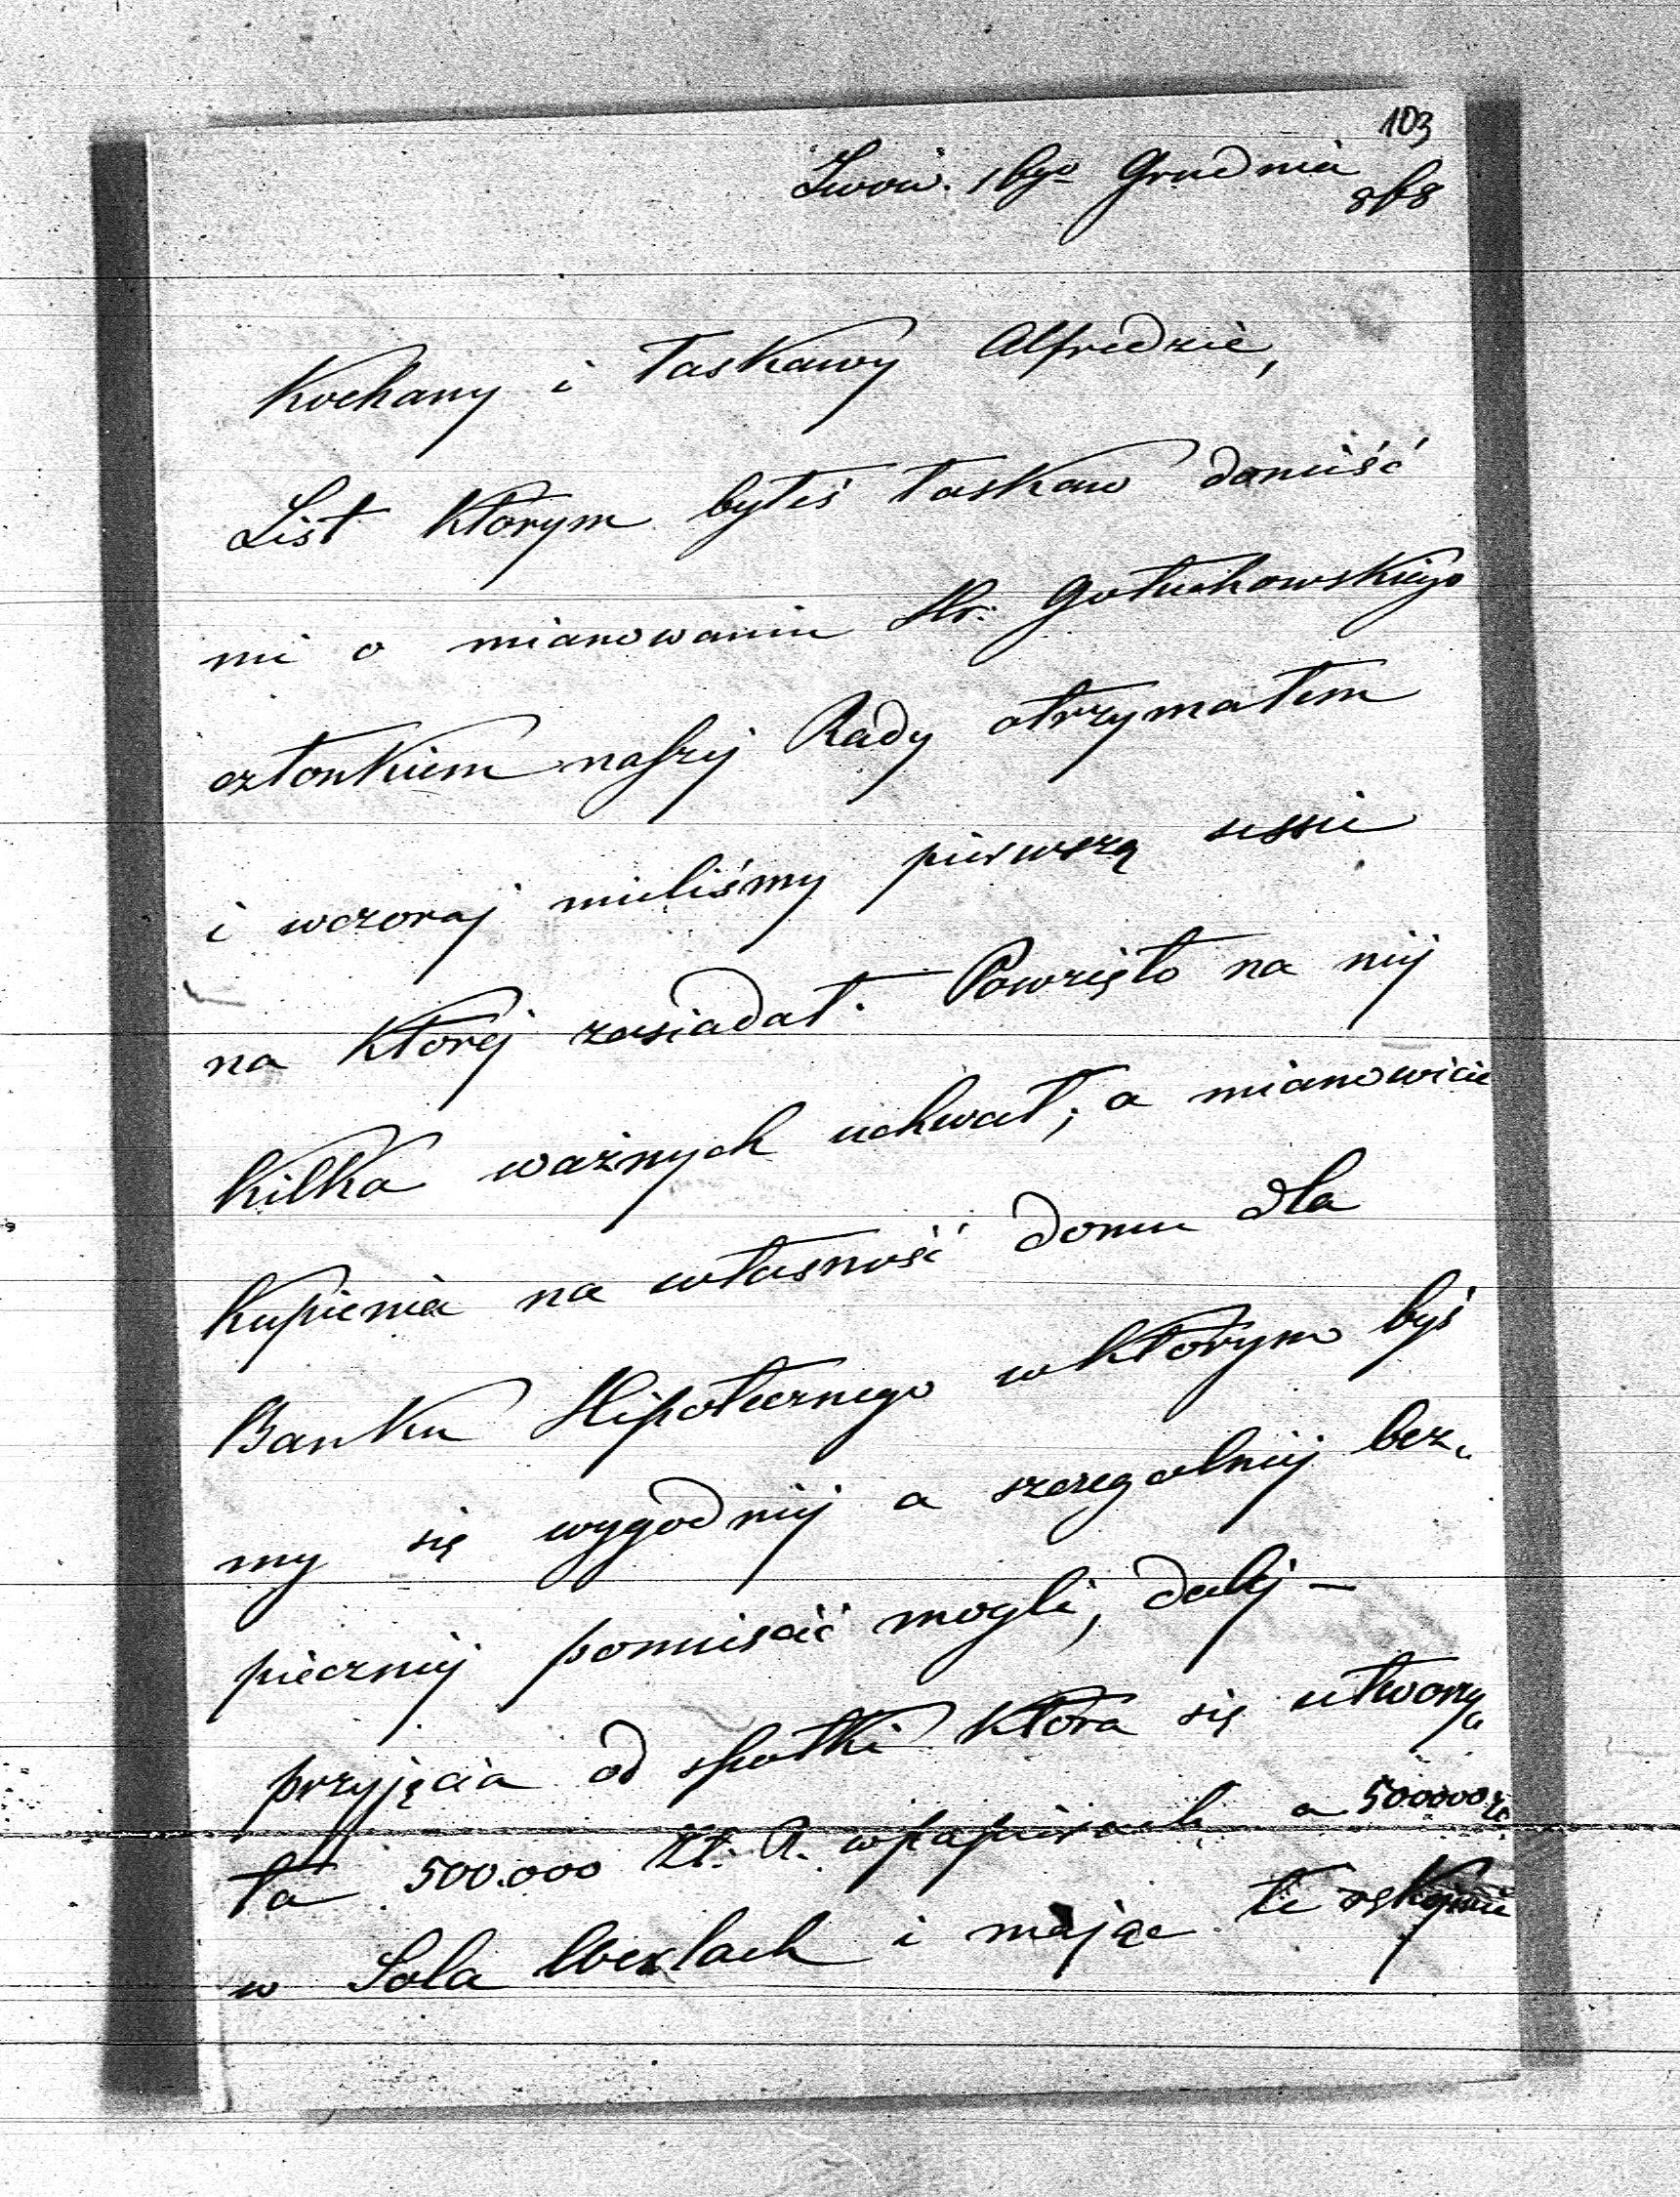 103
Lwów. 16go Grudnia
868
Kochany i Łaskawy Alfredzie,
List którym byłeś łaskaw donieść
mi o mianowaniu Hr: Gołuchowskiego
członkiem naszej Rady otrzymałem
i wczoraj mieliśmy pierwszą sessie
na której zasiadał. Powzięto na niej
kilka ważnych uchwał; a mianowicie
kupienia na własność domu dla
Banku Hipotecznego w którym byś
my się wygodniej a szczególniej bez„
pieczniej pomieścić mogli, dalej –
przyjęcia od spółki która się utworzy„
ła 500.000 Zł: A. w papierach a 500000
w Sola Wexlach i mając te